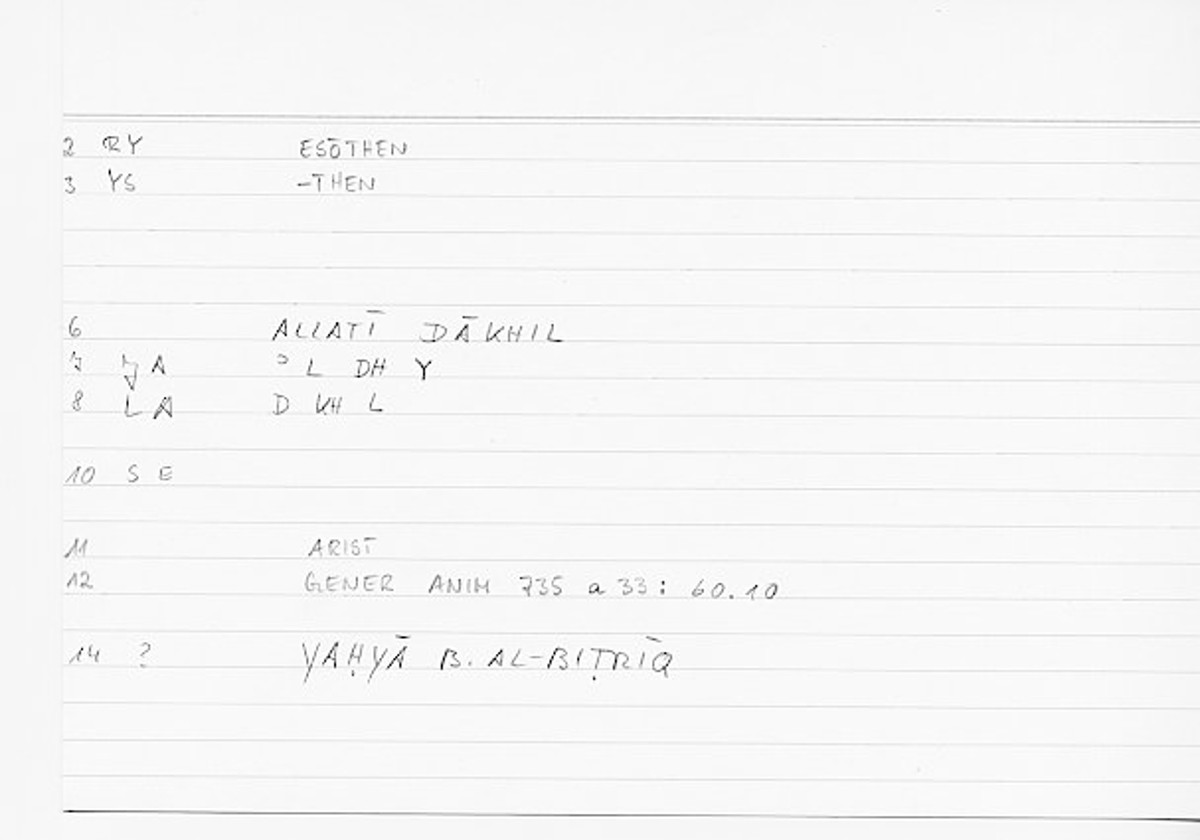 2 RY ESŌTHEN
3 YS -THEN
6 ALLATĪ DĀKHIL
7 JA ᵓL DH Y
8 LA D KH L
10 S E
11 ARIST
12 GENER ANIM 735 a 33: 60.10
14 ? YAḤYĀ B. AL-BIṬRĪQ